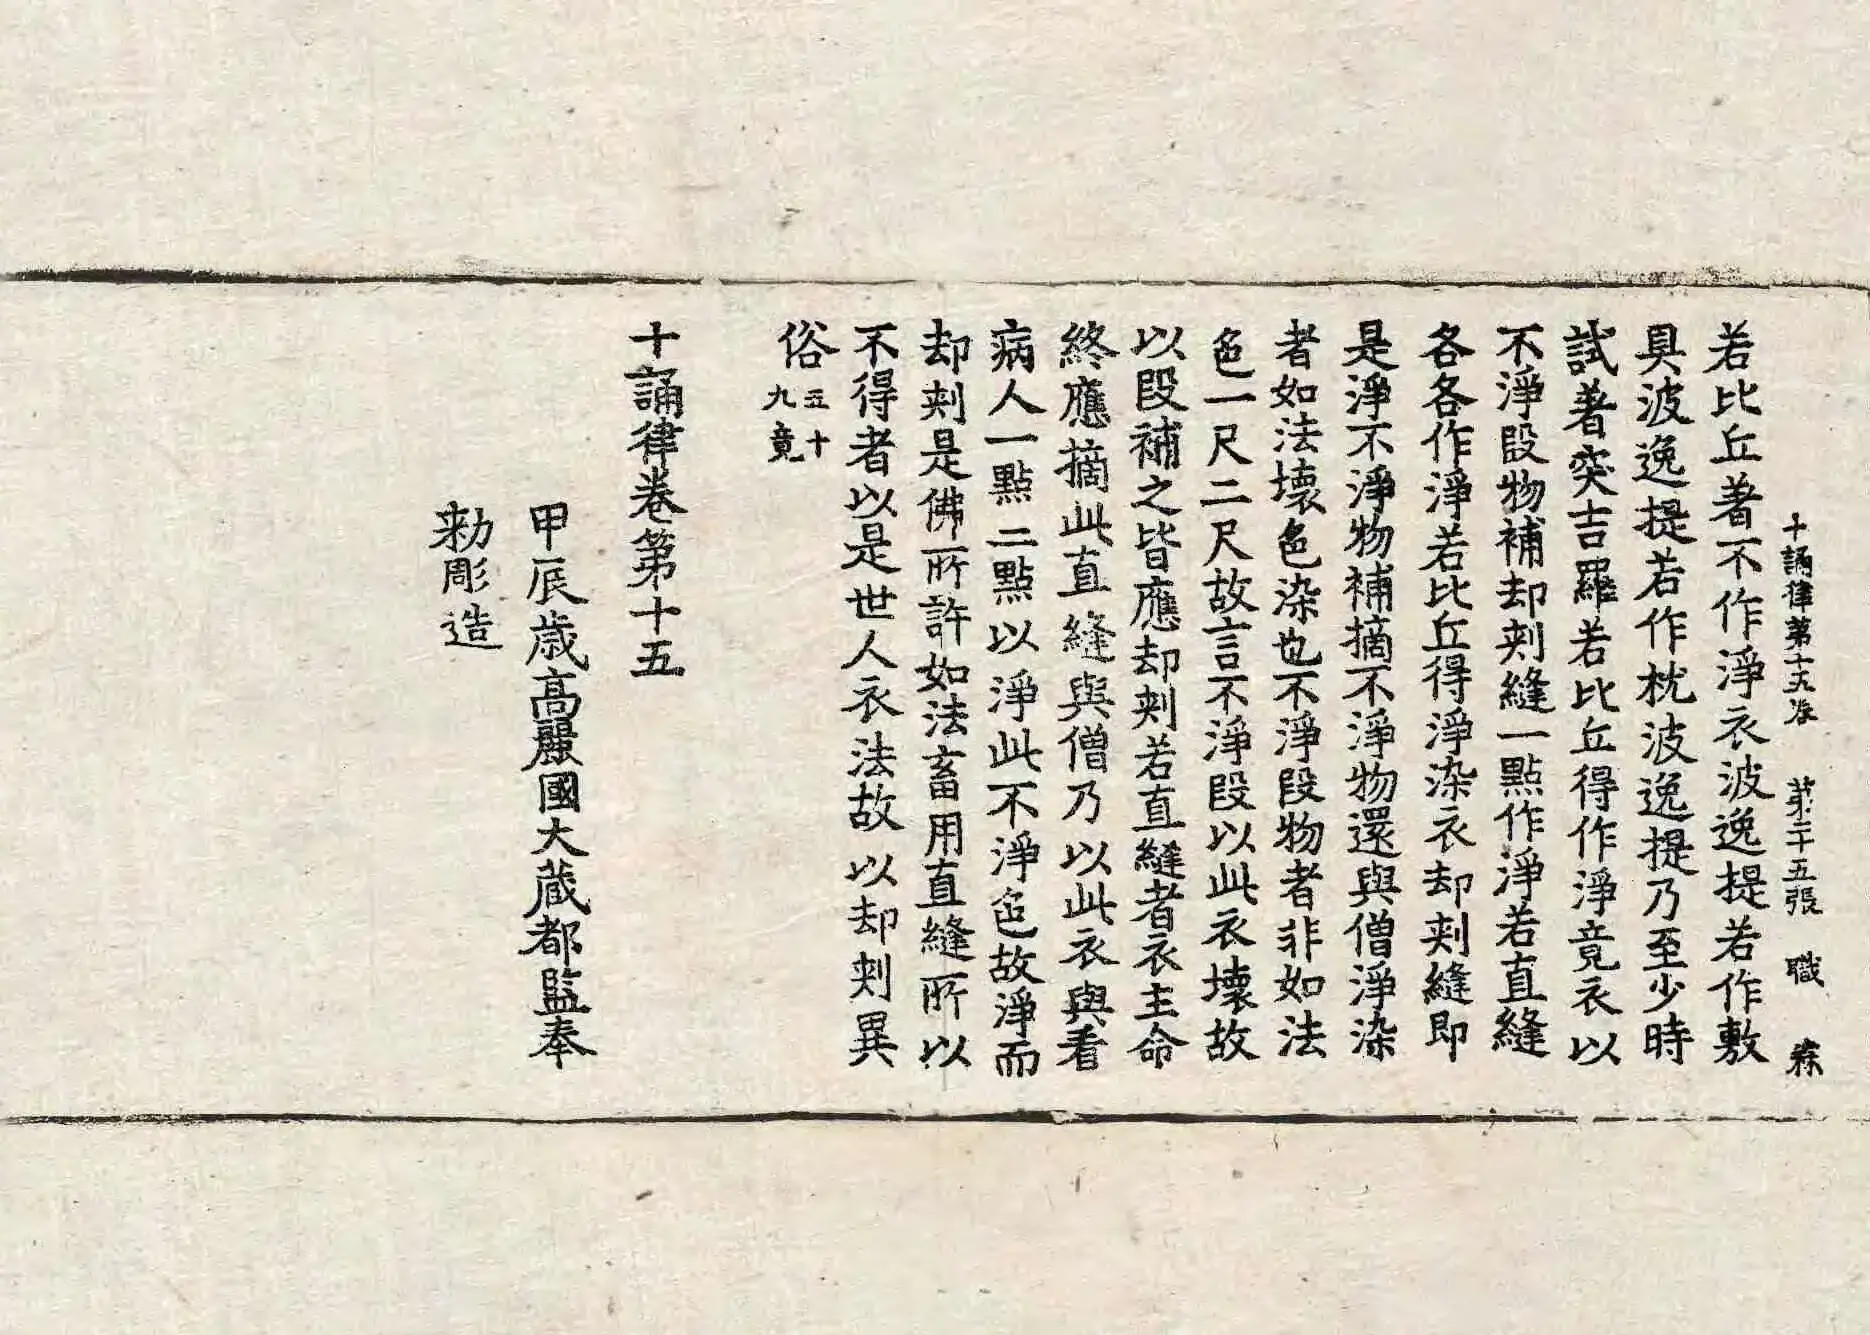 十誦律第十五卷 第二十五張 職
若比丘著不作淨衣波逸提若作敷
具波逸提若作枕波逸提乃至少時
試著突吉羅若比丘得作淨竟衣以
不淨段物補却刾縫一點作淨若直縫
各各作淨若比丘得淨染衣却刾縫即
是淨不淨物補摘不淨物還與僧淨染
者如法壞色染也不淨段物者非如法
色一尺二尺故言不淨段以此衣壞故
以段補之皆應却刾若直縫者衣主命
終應摘此直縫與僧乃以此衣與看
病人一點二點以淨此不淨色故淨而
却刾是佛所許如法畜用直縫所以
不得者以是世人衣法故以却刾異
俗五十九竟
十誦律卷第十五
甲辰歳高麗國大藏都監奉
勑彫造